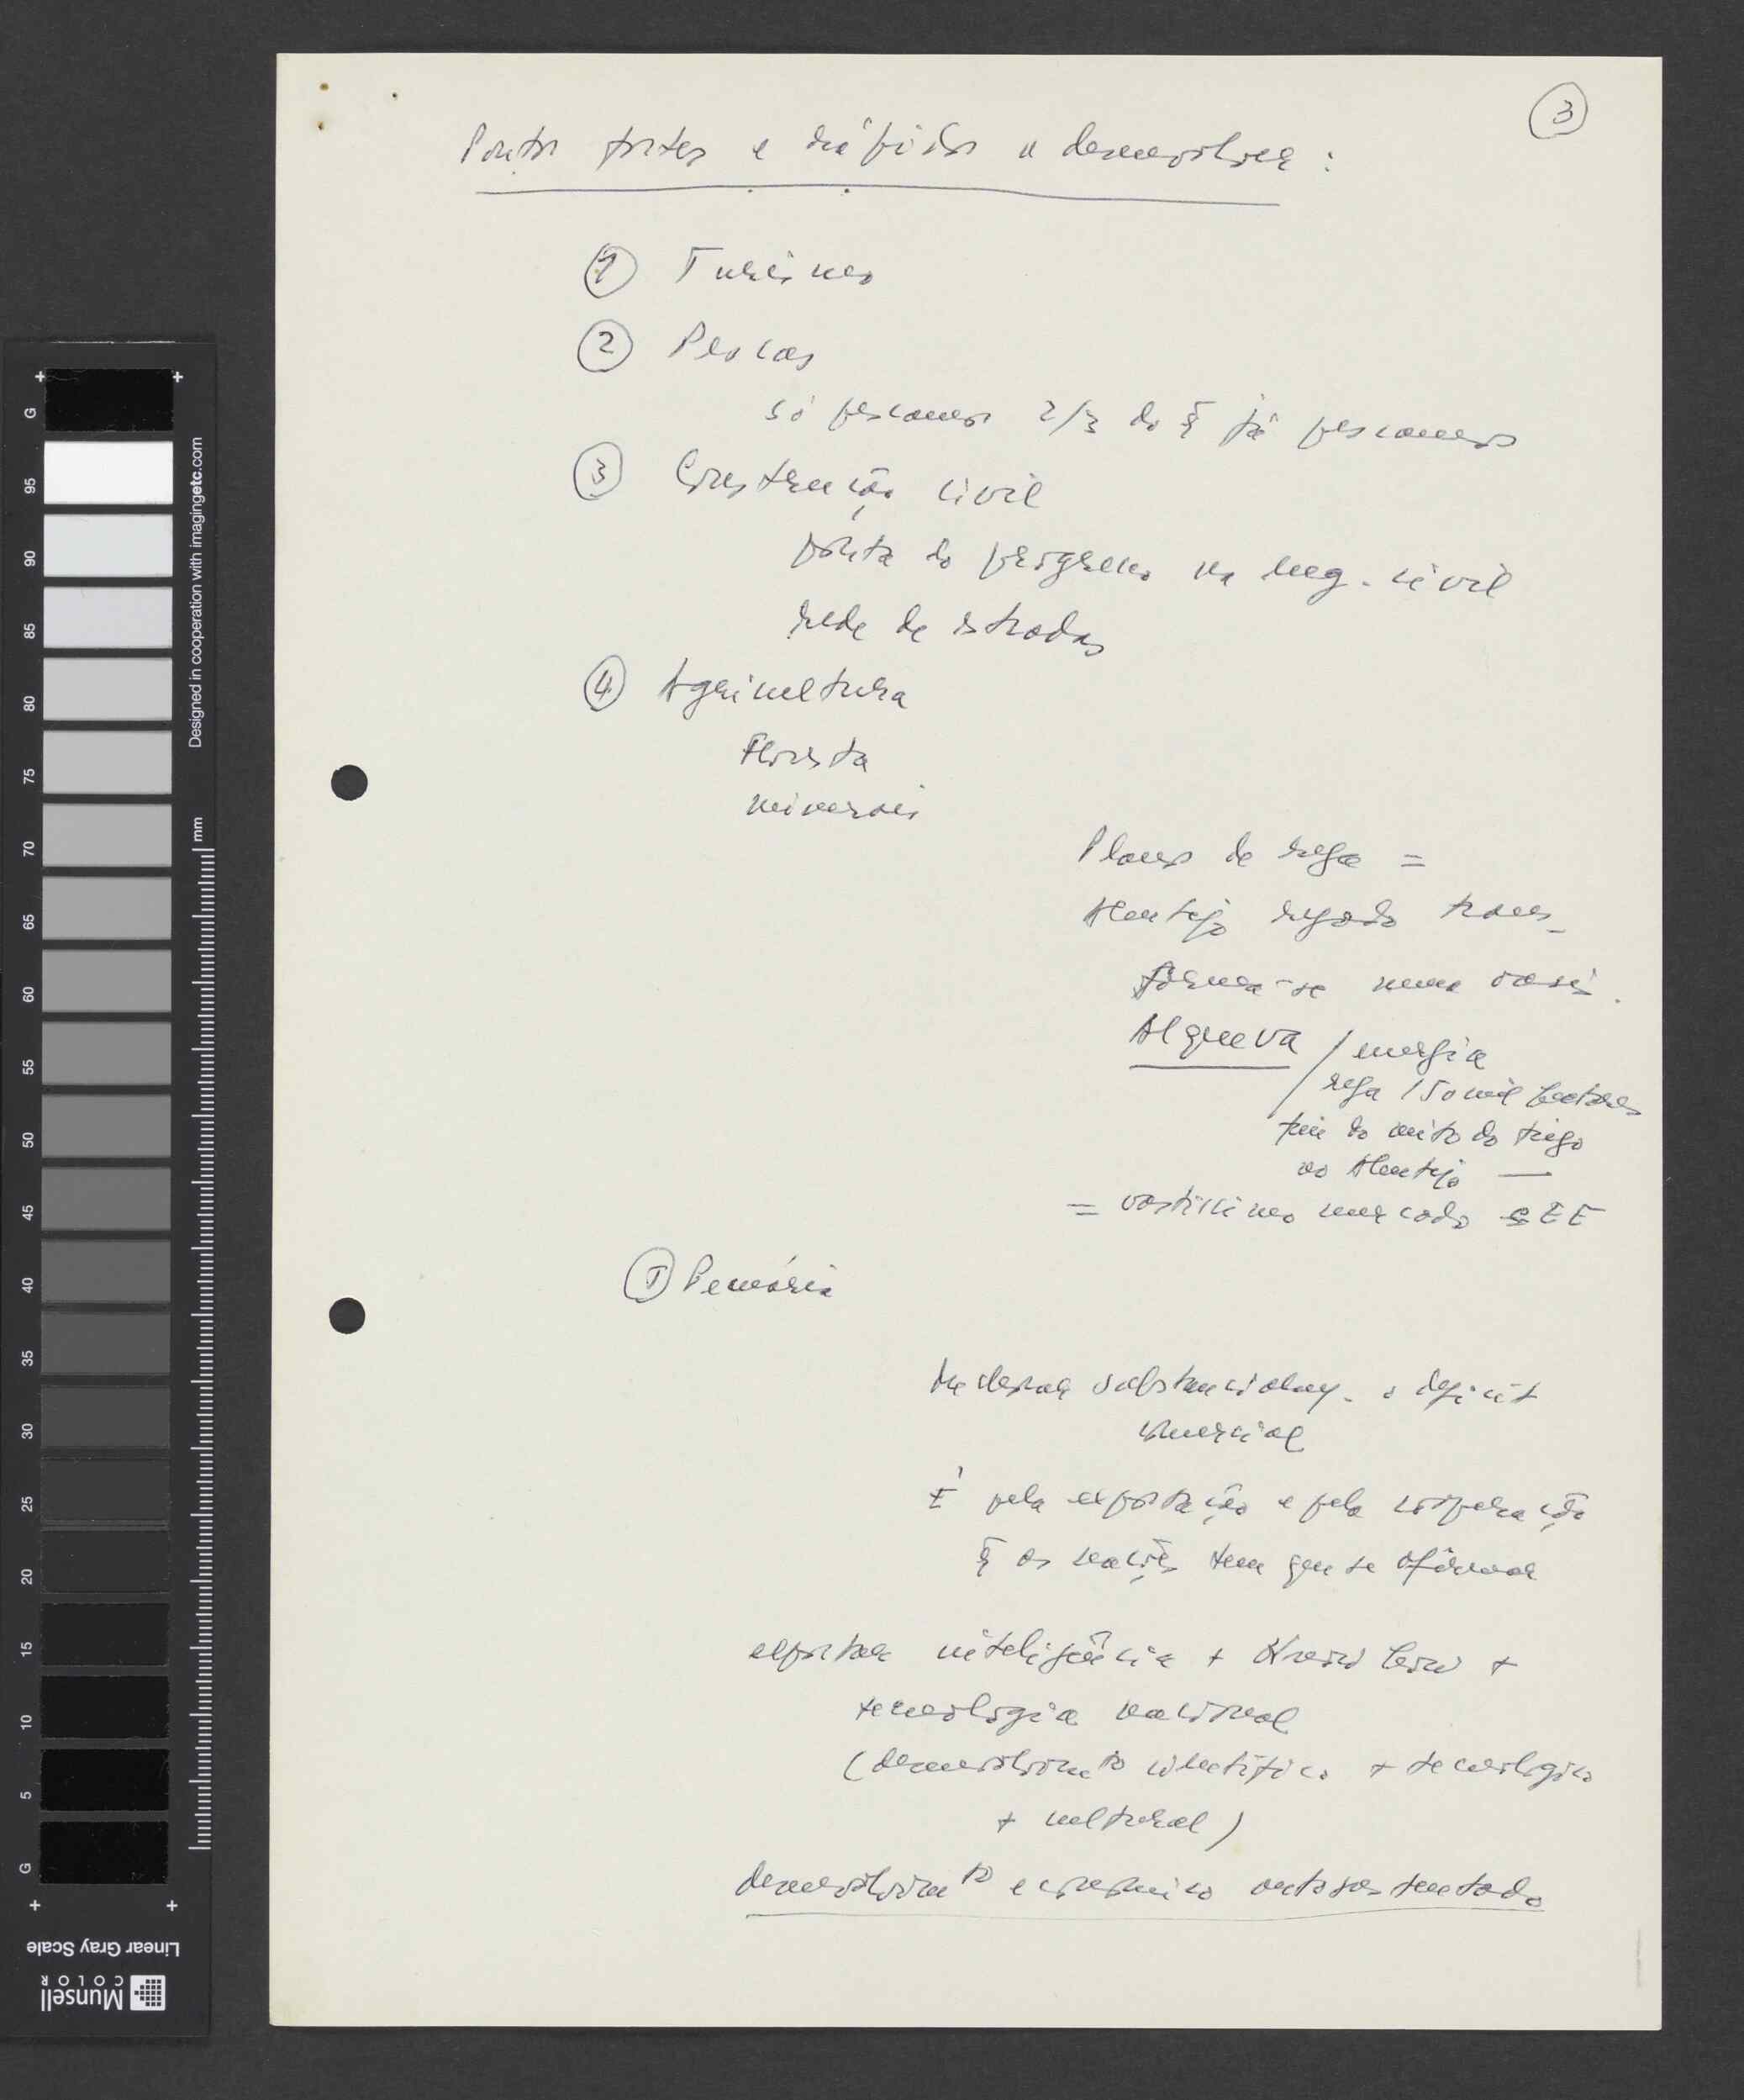 3
Pontos fortes e rápidos a desenvolver :
1 Turismo
2 Pescas
só pescamos 2/3 do q̃ já pescamos
3 Construção civil
ponta do progresso na eng. civil
rede de estradas
4 Agricultura
Floresta
minerais
Planos de rega =
Alentejo regado trans-
forma-se num oasis.
Alqueva / energia
/ rega 150 mil hectares
fim do mito do trigo
no Alentejo —
= vastissimo mercado CEE
5 Pecuária
substancialmᵉ. o deficit
comercial
É pela exportação e pela cooperação
q̃ as nações tem que se afirmar
exportar inteligência + Know how +
tecnologia nacional
(desenvolvimᵗᵒ cientifico + tecnologico
+ cultural)
desenvolvimᵗᵒ economico autosustentado
G
95
90
85
80
75
70
65
60
55
50
45
40
35
30
25
20
15
10
5
G
Designed in cooperation with imagingetc.com
mm
Linear Gray Scale
Munsell
COLOR